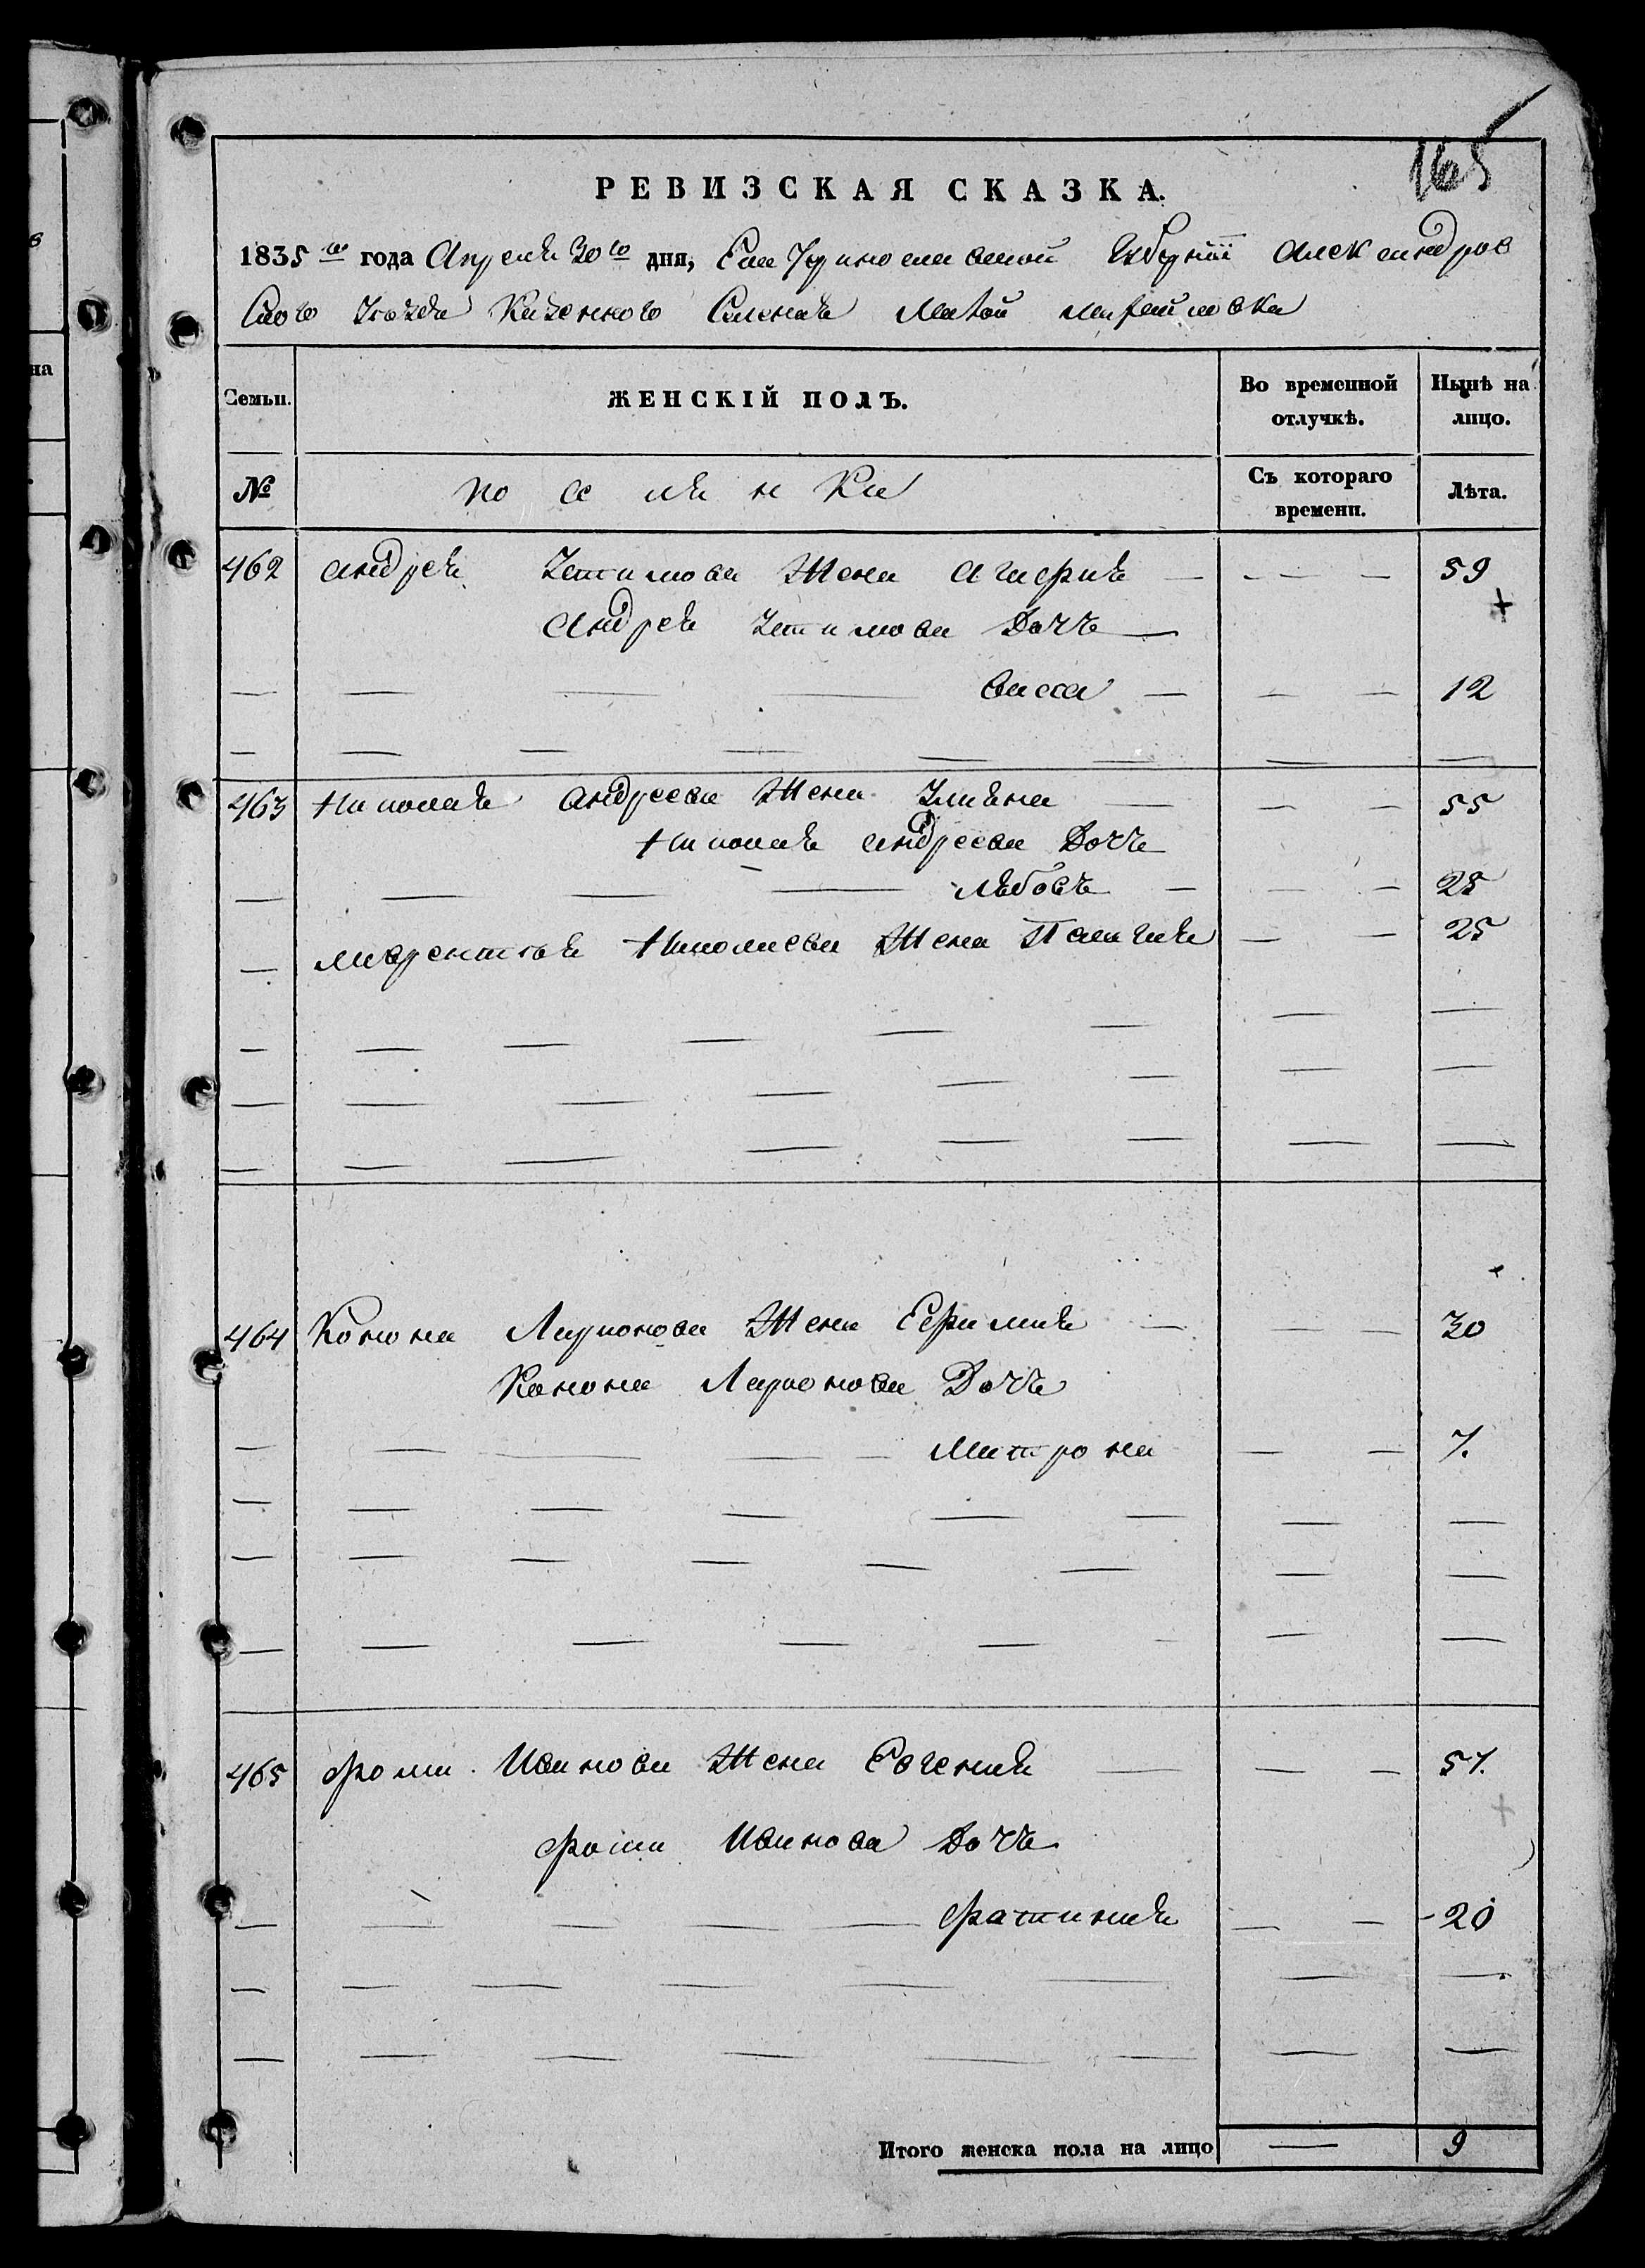 165
РЕВИЗСКАЯ СКАЗКА.
1835 го года Апреля 30 го дня, Екатуринославской Губернiи Александров
Скаго Уѣзда Казенного Селенiя Малой михайловка
на
Семьи.
ЖЕНСКІЙ ПОЛЪ.
Во временной отлучкѣ.
Нынѣ на лицо.
№
по се ля н ки
Съ котораго времени.
Лѣта.
462 андрея Устимова Жена Агафия — — — 59
Андрея Устимова Дочь —
васса — — — 12
463 Николая Андреева Жена Улияна — — — 55
Николая андреева Дочь
— — — — любовь — — — 25
— лаврентия Николаева Жена Пелагия — — 25
464 Конона Ларионова Жена Ефимия — — — 30
Конона Ларионова Дочь
— — — — — матрона — — 7.
465 фоми Иванова Жена Евгения — — — 57.
фоми Иванова Дочь
— — — — — фатиния — — 20
Итого женска пола на лицо — 9